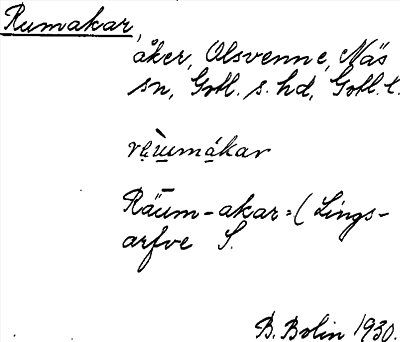 Rumakar,
åker, Olsvenne, Näs
sn, Gotl. s. hd, Gotl. l.
ve̮ùmákar
Räum-akar = ( Lings-
arfve S.
B. Bolin 1930.